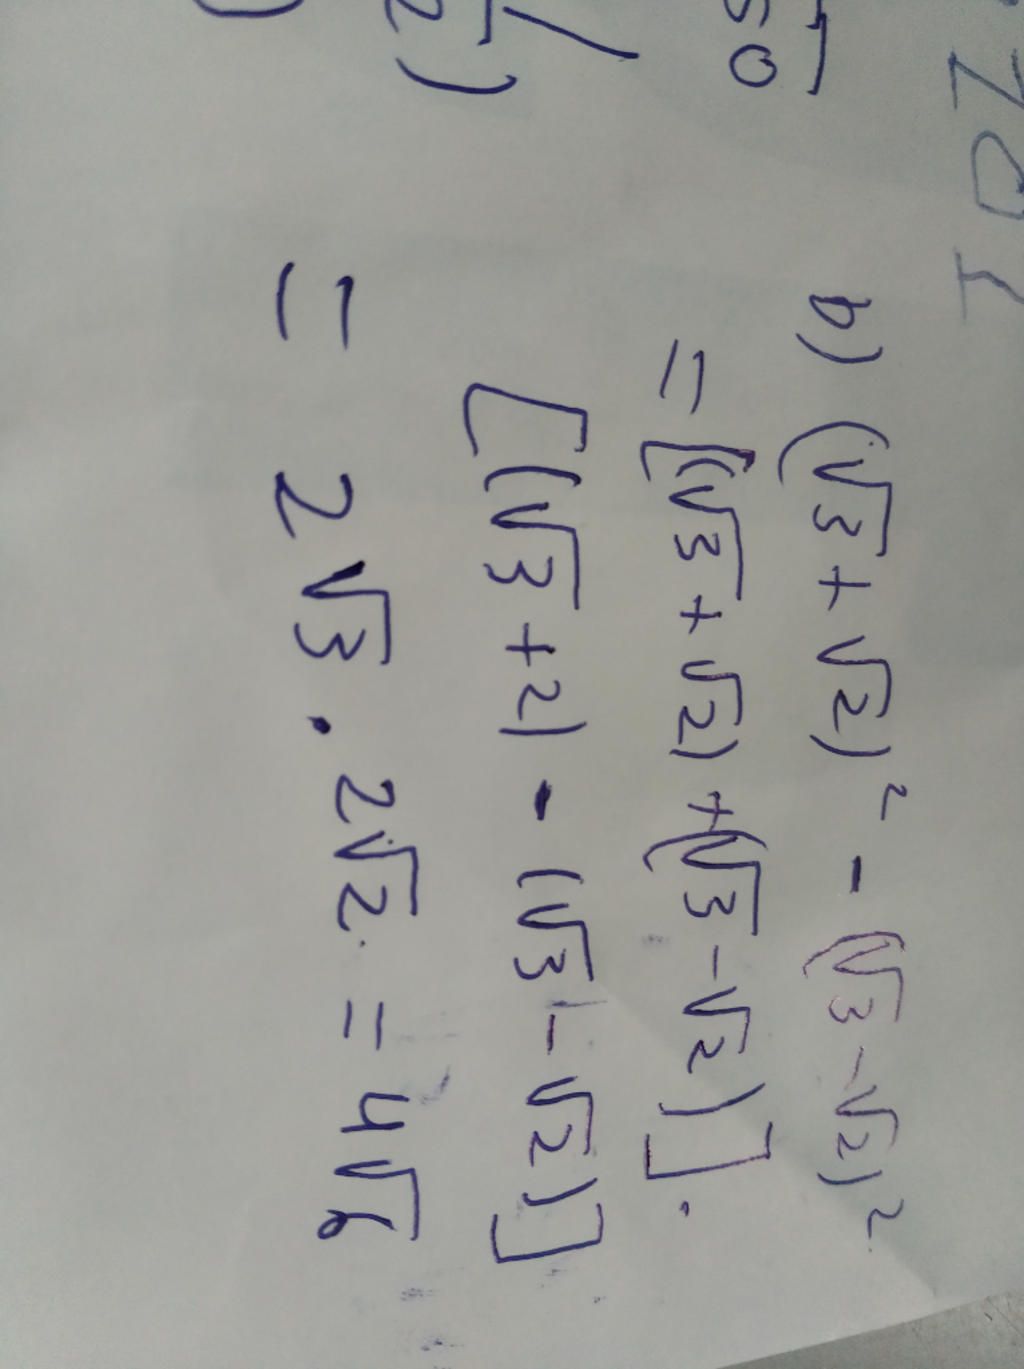 b) (√3 + √2)² - (√3 - √2)²
= [(√3 + √2) + (√3 - √2)] .
[(√3 + 2) - (√3 - √2)]
= 2√3 . 2√2 = 4√6